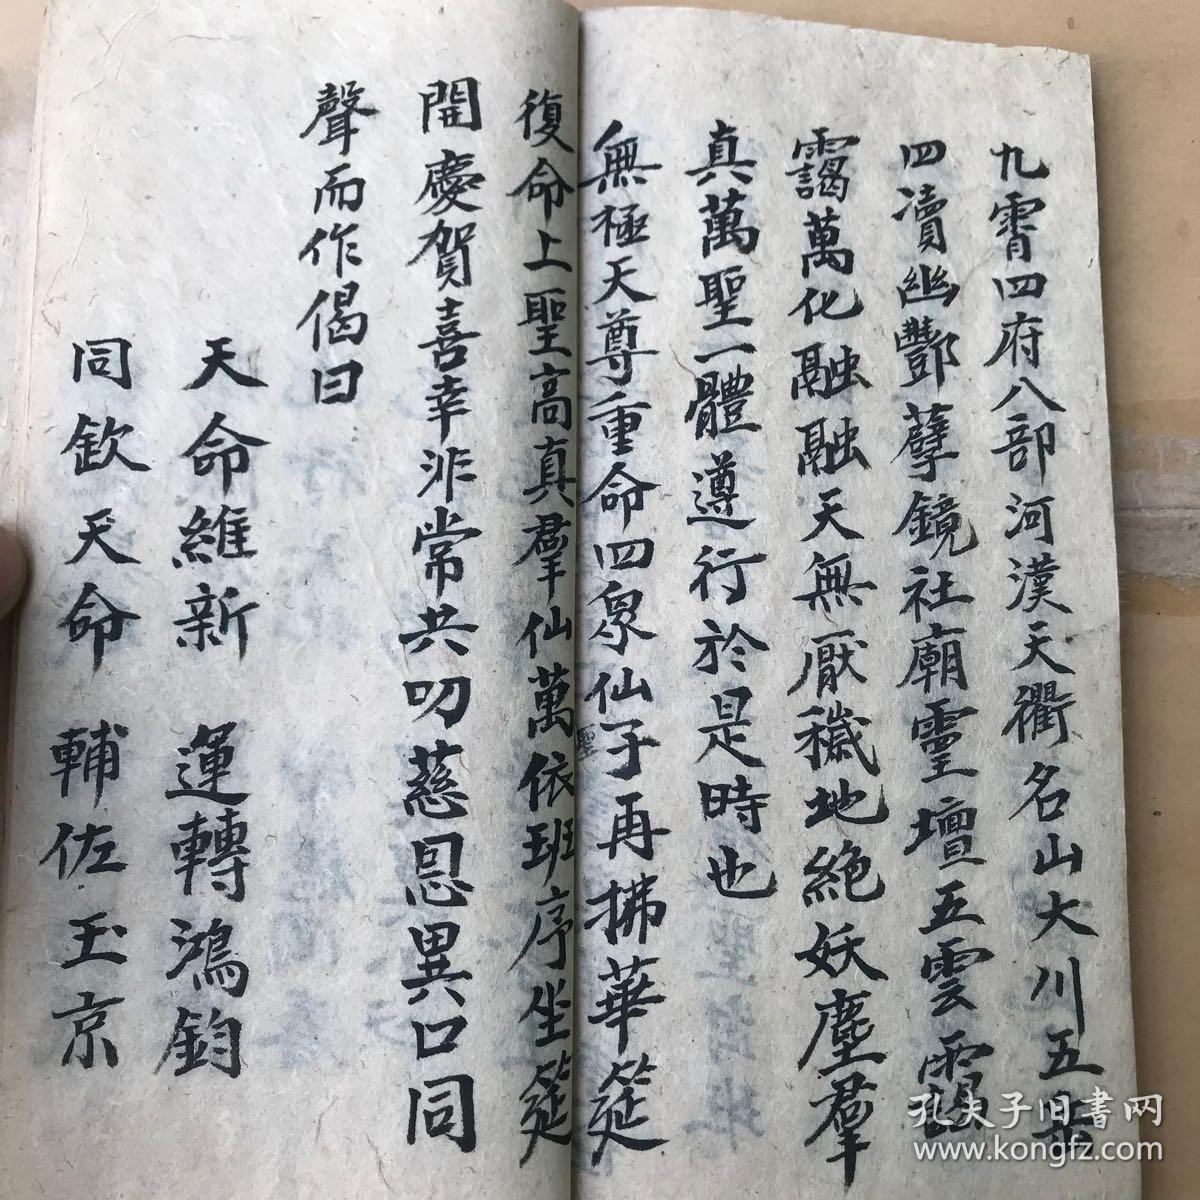 九霄四府八部河漢天衢名山大川五
四瀆幽酆孽鏡社廟靈壇五雲靄
靄萬化融融天無厭穢地絶妖塵羣
真萬聖一體遵行於是時也
無極天尊重命四象仙子再拂華筵
復命上聖高真羣仙萬依班序坐筵
聖
開慶賀喜幸非常共叨慈恩異口同
聲而作偈曰
天命維新 運轉鴻鈞
同欽天命 輔佐玉京
孔夫子旧書网
www.kongfz.com